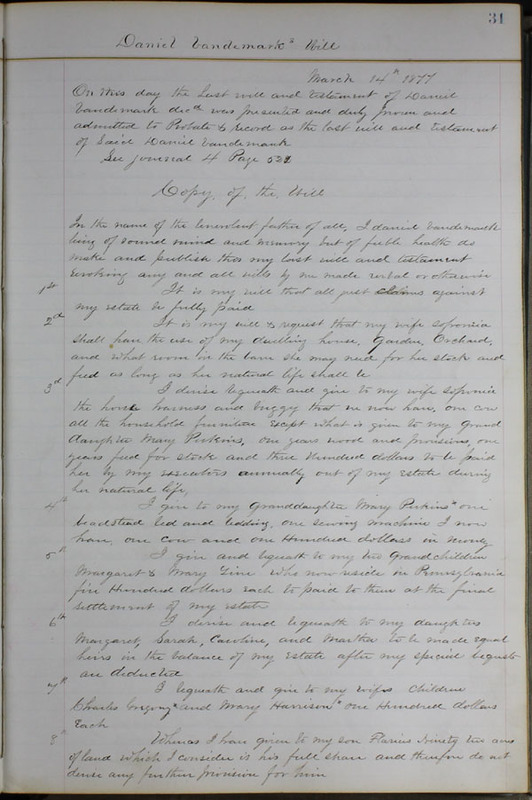 31
Daniel Vandemark's Will
March 14th 1877
On this day the Last will and testament of Daniel
Vandemark decd was presented and duly proven and
admitted to Probate & record as the last will and testament
of Said Daniel Vandemark
See journal 4 Page 532
Copy of the Will
In the name of the benevolent father of all, I daniel Vandemark
being of sound mind and memory but of feble health do
make and publish this my last will and testament
revoking any and all wills by me made verbal or otherwise
1st It is my will that all just claims against
my estate be fully paid
2d It is my will & request that my wife Sofronia
shall have the use of my dwelling house, Garden, Orchard,
and what room in the barn she may need for her stock and
feed as long as her natural life shall be
3d I devise bequeath and give to my wife Sofronia
the horse harness and buggy that we now have, one cow
all the household furniture except what is given to my Grand
daughter Mary Perkins, one years wood and provisions, one
years feed for stock and three Hundred dollars to be paid
her by my executors annually out of my estate during
her natural life,
4th I give to my Granddaughter Mary Perkins one
beadstead bed and bedding, one sewing machine I now
have, one cow and one Hundred dollars in money
5th I give and bequeath to my two Grandchildren
Margaret & Mary who now reside in Pennsylvania
five Hundred dollars each to paid to them at the final
settlement of my estate
6th I devise and bequeath to my daughters
Margaret, Sarah, Caroline, and Martha to be made equal
heirs in the balance of my estate after my special bequests
are deducted
7th I bequeath and give to my wifes children
Charles and Mary Harrison one Hundred dollars
Each
8th Whereas I have given to my son Ninety two acres
of land which I consider is his full share and therefore do not
devise any further provision for him